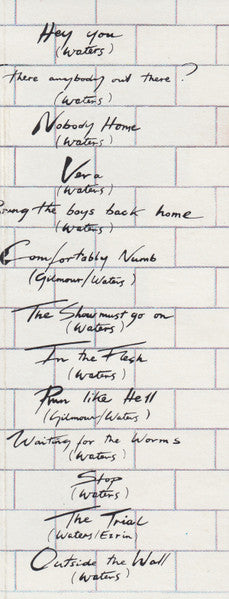 Hey you
(Waters)
there anybody out there?
(Waters)
Nobody Home
(Waters)
Vera
(Waters)
Bring the boys back home
(Waters)
Comfortably Numb
(Gilmour/Waters)
The Show must go on
(Waters)
In the Flesh
(Waters)
Run like Hell
(Gilmour/Waters)
Waiting for the Worms
(Waters)
Stop
(Waters)
The Trial
(Waters/Ezrin)
Outside the Wall
(Waters)